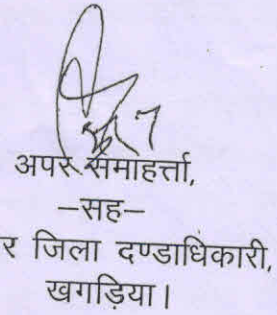 अपर समाहर्त्ता,
–सह–
र जिला दण्डाधिकारी,
खगड़िया।